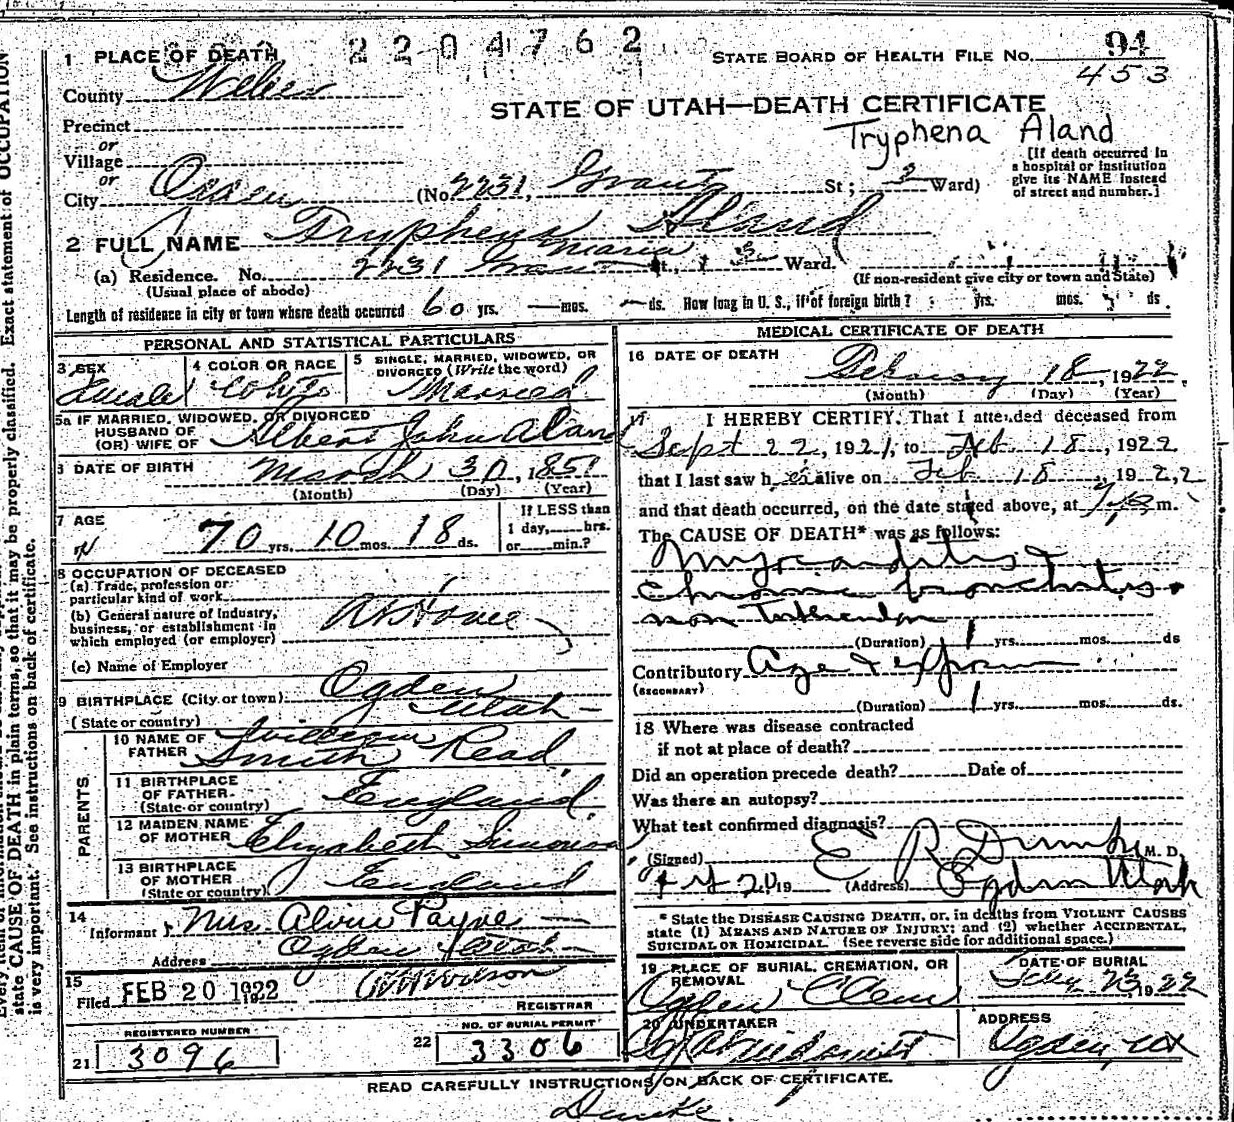 2204762
STATE BOARD OF HEALTH FILE NO. 94
453
STATE OF UTAH—DEATH CERTIFICATE
Tryphena Aland
1 PLACE OF DEATH
County Weber
Precinct
or
Village
or
City Ogden (No. 2231, Grant St; 3 Ward)
[If death occurred in
a hospital or institution
give its NAME instead
of street and number.]
2 FULL NAME Tryphena Maria Aland
(a) Residence. No. 2231 Grant St., 3 Ward.
(Usual place of abode)
(If non-resident give city or town and State)
Length of residence in city or town where death occurred 60 yrs. — mos. — ds. How long in U. S., if of foreign birth? yrs. mos. ds.
PERSONAL AND STATISTICAL PARTICULARS
3 SEX
Female
4 COLOR OR RACE
White
5 SINGLE, MARRIED, WIDOWED, OR
DIVORCED (Write the word)
Married
5a IF MARRIED, WIDOWED, OR DIVORCED
HUSBAND OF
(OR) WIFE OF Albert John Aland
6 DATE OF BIRTH March 30, 1851
(Month) (Day) (Year)
7 AGE
70 yrs. 10 mos. 18 ds.
If LESS than
1 day, hrs.
or min.?
8 OCCUPATION OF DECEASED
(a) Trade, profession or
particular kind of work
(b) General nature of industry,
business, or establishment in
which employed (or employer)
At Home
(c) Name of Employer
9 BIRTHPLACE (City or town) Ogden
(State or country) Utah
PARENTS
10 NAME OF
FATHER
William
Smith Read
11 BIRTHPLACE
OF FATHER
(State or country)
England
12 MAIDEN NAME
OF MOTHER
Elizabeth
13 BIRTHPLACE
OF MOTHER
(State or country)
England
14
Informant Mrs. Alvin Payne
Address Ogden Utah
15
Filed FEB 20 1922 Wilson
REGISTRAR
REGISTERED NUMBER
21 3096
NO. OF BURIAL PERMIT
22 3306
MEDICAL CERTIFICATE OF DEATH
16 DATE OF DEATH
February 18, 1922.
(Month) (Day) (Year)
17 I HEREBY CERTIFY, That I attended deceased from
Sept 22, 1921, to Feb. 18, 1922
that I last saw her alive on Feb 18, 1922,
and that death occurred, on the date stated above, at m.
The CAUSE OF DEATH* was as follows:
Myocarditis &
Chronic bronchitis
non tubercular
(Duration) 1 yrs. mos. ds
Contributory Age &
(SECONDARY)
(Duration) 1 yrs. mos. ds.
18 Where was disease contracted
if not at place of death?
Did an operation precede death? Date of
Was there an autopsy?
What test confirmed diagnosis?
(Signed) E R Dumke M. D.
19 (Address) Ogden Utah
* State the DISEASE CAUSING DEATH, or, in deaths from VIOLENT CAUSES
state (1) MEANS AND NATURE OF INJURY; and (2) whether ACCIDENTAL,
SUICIDAL OR HOMICIDAL. (See reverse side for additional space.)
19 PLACE OF BURIAL, CREMATION, OR
REMOVAL
Ogden Cem
DATE OF BURIAL
Feby 23, 1922
20 UNDERTAKER
ADDRESS
Ogden
READ CAREFULLY INSTRUCTIONS ON BACK OF CERTIFICATE.
Dumke
state CAUSE OF DEATH in plain terms, so that it may be properly classified. Exact statement of OCCUPATION
is very important. See instructions on back of certificate.